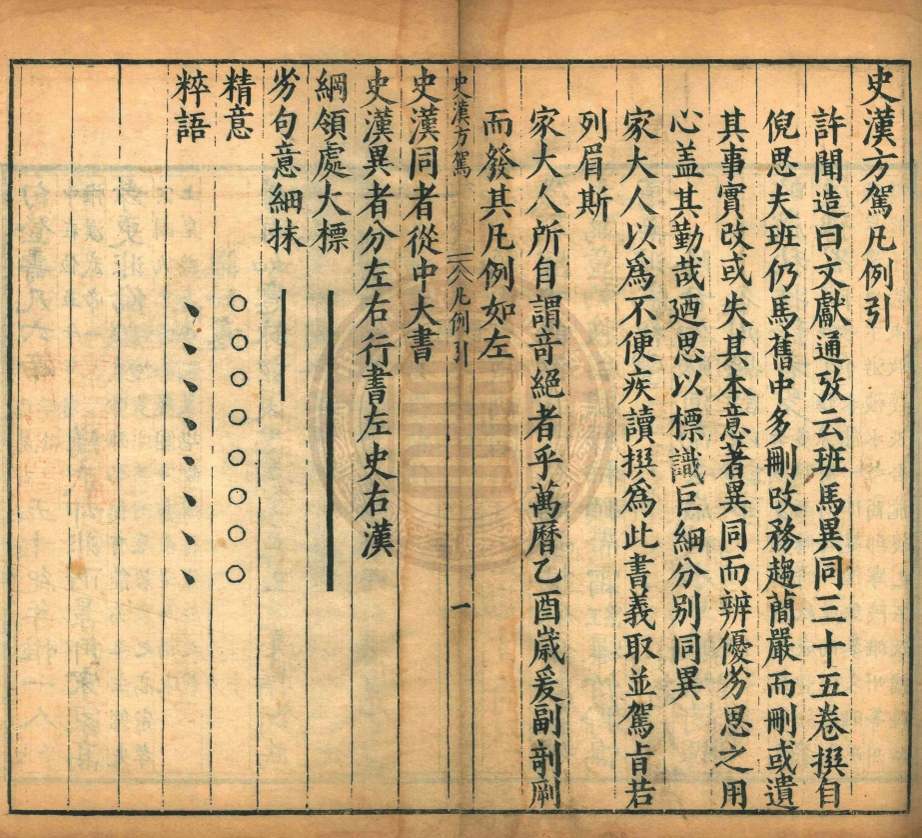 史漢方駕凡例引
許聞造曰文獻通攷云班馬異同三十五卷撰自
倪思夫班仍馬舊中多刪改務趨簡嚴而刪或遺
其事實改或失其本意著異同而辨優劣思之用
心盖其勤哉廼思以標識巨細分别同異
家大人以爲不便疾讀撰爲此書義取並駕旨若
列眉斯
家大人所自謂竒絕者乎萬曆乙酉歲爰副剞劂
而發其凡例如左
史漢方駕 凡例引 一
史漢同者從中大書
史漢異者分左右行書左史右漢
綱領處大標
劣句意細抹
精意 ○○○○○○○○
粹語 、、、、、、、、